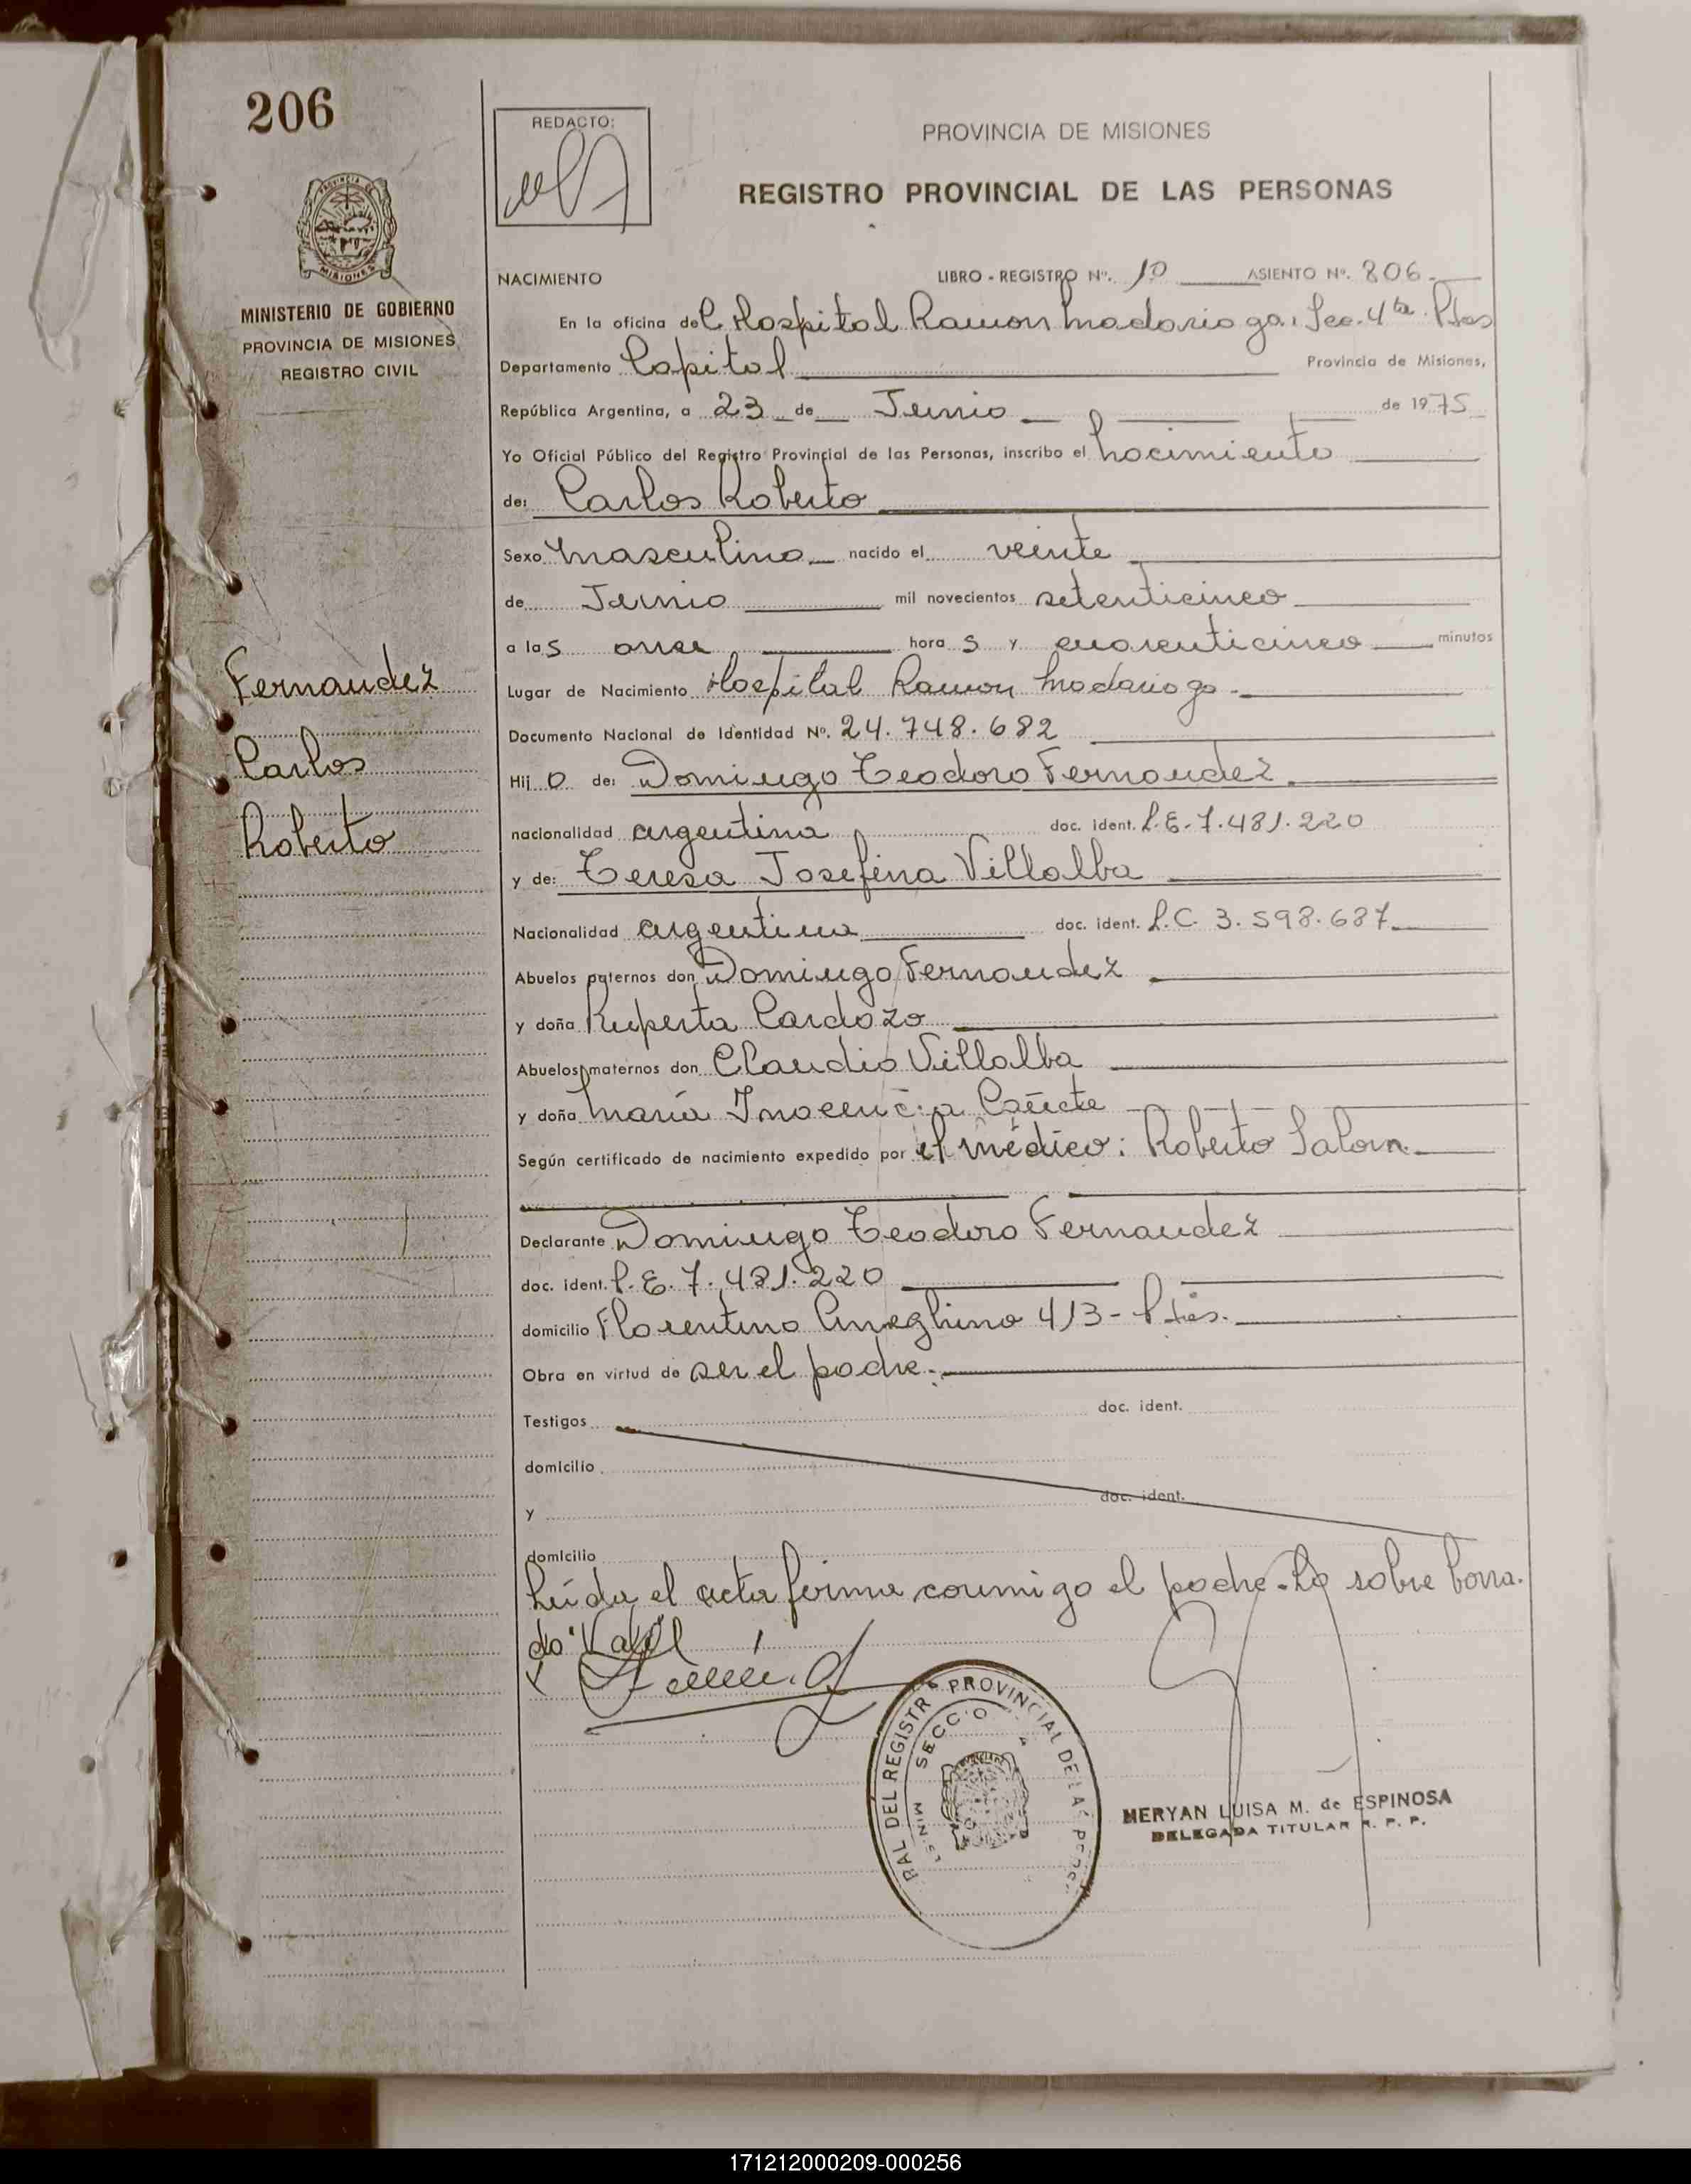 206
REDACTO:
PROVINCIA DE MISIONES
REGISTRO PROVINCIAL DE LAS PERSONAS
PROVINCIA DE
MISIONES
MINISTERIO DE GOBIERNO
PROVINCIA DE MISIONES
REGISTRO CIVIL
NACIMIENTO
LIBRO - REGISTRO Nº. 10 ASIENTO Nº. 806
En la oficina del Hospital Ramon Madariaga, Sec. 4ta Pdas
Departamento Capital Provincia de Misiones,
República Argentina, a 23 de Junio de 1975
Yo Oficial Público del Registro Provincial de las Personas, inscribo el nacimiento
de: Carlos Roberto
Sexo masculino nacido el veinte
de Junio mil novecientos setenticinco
a las once horas y cuarenticinco minutos
Lugar de Nacimiento Hospital Ramon Madariaga
Documento Nacional de Identidad Nº. 24.748.682
Hijo de: Domingo Teodoro Fernandez
nacionalidad argentina doc. ident. L.E. 7.481.220
y de: Teresa Josefina Villalba
Nacionalidad argentina doc. ident. L.C. 3.598.687
Abuelos paternos don Domingo Fernandez
y doña Ruperta Cardozo
Abuelos maternos don Claudio Villalba
y doña María Inocencia Cañete
Según certificado de nacimiento expedido por el médico: Roberto Salom
Declarante Domingo Teodoro Fernandez
doc. ident. L.E. 7.481.220
domicilio Florentino Ameghino 413 - Pdas.
Obra en virtud de ser el padre.
Testigos doc. ident.
domicilio
y doc. ident.
domicilio
Leída el acta firma conmigo el padre. Lo sobre borra-
do
Fernandez
Carlos
Roberto
RAL DEL REGISTR PROVINCIAL DE LAS PERS
SECCIO
MERYAN LUISA M. de ESPINOSA
DELEGADA TITULAR R. P. P.
171212000209-000256